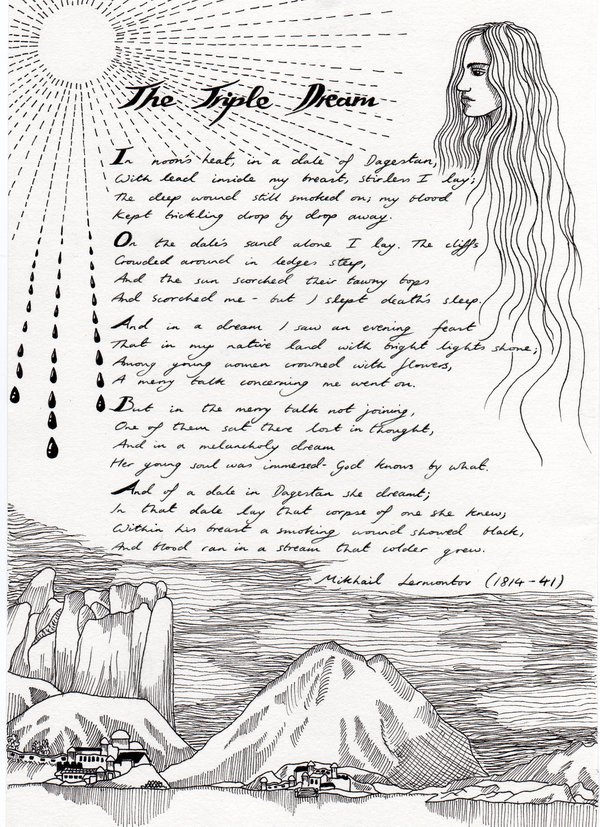 The Triple Dream
In noon's heat, in a dale of Dagestan,
With lead inside my breast, stirless I lay;
The deep wound still smoked on; my blood
Kept trickling drop by drop away.
On the dale's sand alone I lay. The cliffs
Crowded around in ledges steep,
And the sun scorched their tawny tops
And scorched me - but I slept death's sleep.
And in a dream I saw an evening feast
That in my native land with bright lights shone;
Among young women crowned with flowers,
A merry talk concerning me went on.
But in the merry talk not joining,
One of them sat there lost in thought,
And in a melancholy dream
Her young soul was immersed - God knows by what.
And of a dale in Dagestan she dreamt;
In that dale lay that corpse of one she knew;
Within his breast a smoking wound showed black,
And blood ran in a stream that colder grew.
Mikhail Lermontov (1814-41)